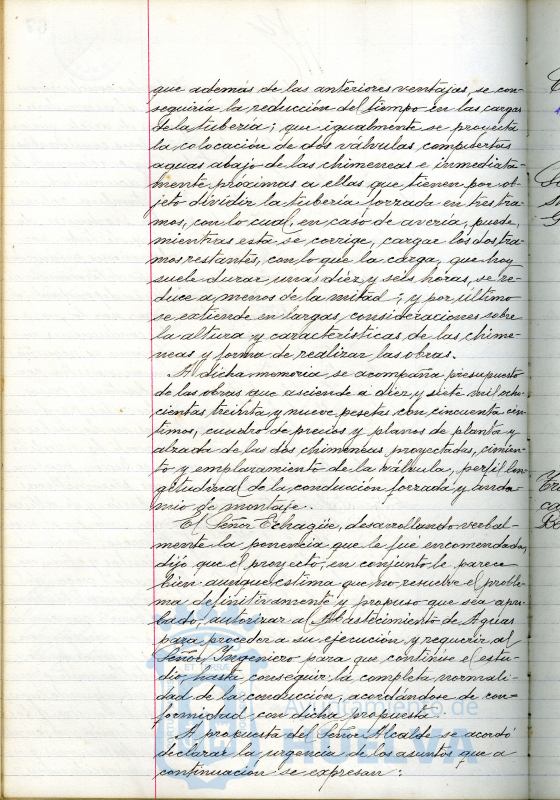 que además de las anteriores ventajas, se con-
seguiría la reducción del tiempo en las cargas
de la tubería; que igualmente se proyecta
la colocación de dos válvulas compuertas
aguas abajo de las chimeneas e inmediata-
mente próximas a ellas que tienen por ob-
jeto dividir la tubería forzada en tres tra-
mos, con lo cual, en caso de avería, puede,
mientras esta se corrige, cargar los dos tra-
mos restantes, con lo que la carga, que hoy
suele durar unas diez y seis horas, se re-
duce a menos de la mitad; y por último
se extiende en largas consideraciones sobre
la altura y características de las chime-
neas y forma de realizar las obras.
A dicha memoria se acompaña presupuesto
de las obras que asciende a diez y siete mil ocho-
cientas treinta y nueve pesetas con cincuenta cén-
timos, cuadro de precios y planos de planta y
alzada de las dos chimeneas proyectadas, cimien-
to y emplazamiento de la válvula, perfil lon-
gitudinal de la conducción forzada y anda-
mio de montaje.
El Señor Echagüe, desarrollando verbal-
mente la ponencia que le fué encomendada,
dijo que el proyecto, en conjunto le parece
bien aunque estima que no resuelve el proble-
ma definitivamente y propuso que sea apro-
bado, autorizar al Abastecimiento de Aguas
para proceder a su ejecución y requerir al
Señor Ingeniero para que continúe el estu-
dio hasta conseguir la completa normali-
dad de la conducción, acordándose de con-
formidad con dicha propuesta.
A propuesta del Señor Alcalde se acordó
declarar la urgencia de los asuntos que a
continuación se expresan:
Ayuntamiento de
HUELVA